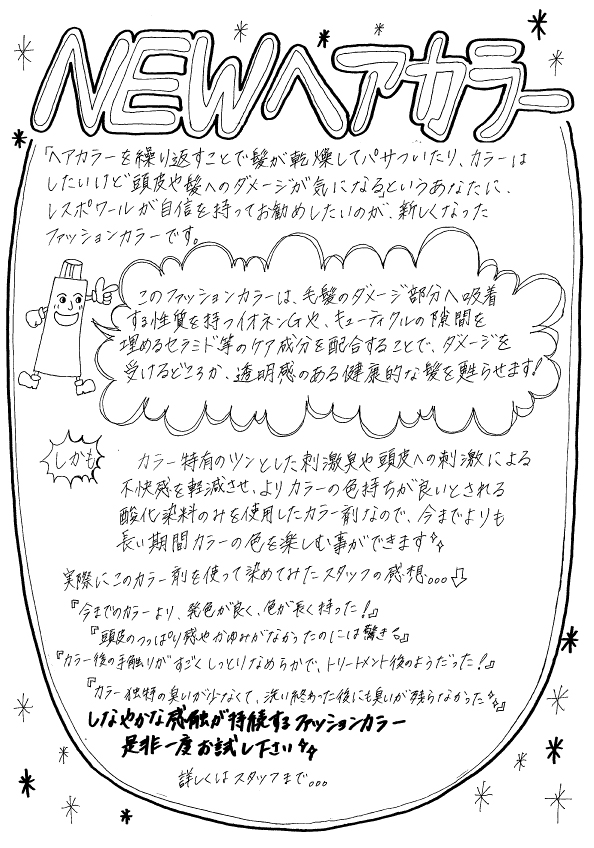 NEWヘアカラー
「ヘアカラーを繰り返すことで髪が乾燥してパサついたり、カラーは
したいけど頭皮や髪へのダメージが気になる」というあなたに、
レスポワールが自信を持ってお勧めしたいのが、新しくなった
ファッションカラーです。
このファッションカラーは、毛髪のダメージ部分へ吸着
する性質を持つイオネンGや、キューティクルの隙間を
埋めるセラミド等のケア成分を配合することで、ダメージを
受けるどころか、透明感のある健康的な髪を甦らせます!
しかも
カラー特有のツンとした刺激臭や頭皮への刺激による
不快感を軽減させ、よりカラーの色持ちが良いとされる
酸化染料のみを使用したカラー剤なので、今までよりも
長い期間カラーの色を楽しむ事ができます
実際にこのカラー剤を使って染めてみたスタッフの感想...
『今までのカラーより、発色が良く、色が長く持った!』
『頭皮のつっぱり感やかゆみがなかったのには驚き。』
『カラー後の手触りがすごくしっとりなめらかで、トリートメント後のようだった!』
『カラー独特の臭いが少なくて、洗い終わった後にも臭いが残らなかった』
しなやかな感触が持続するファッションカラー
是非一度お試し下さい
詳しくはスタッフまで...